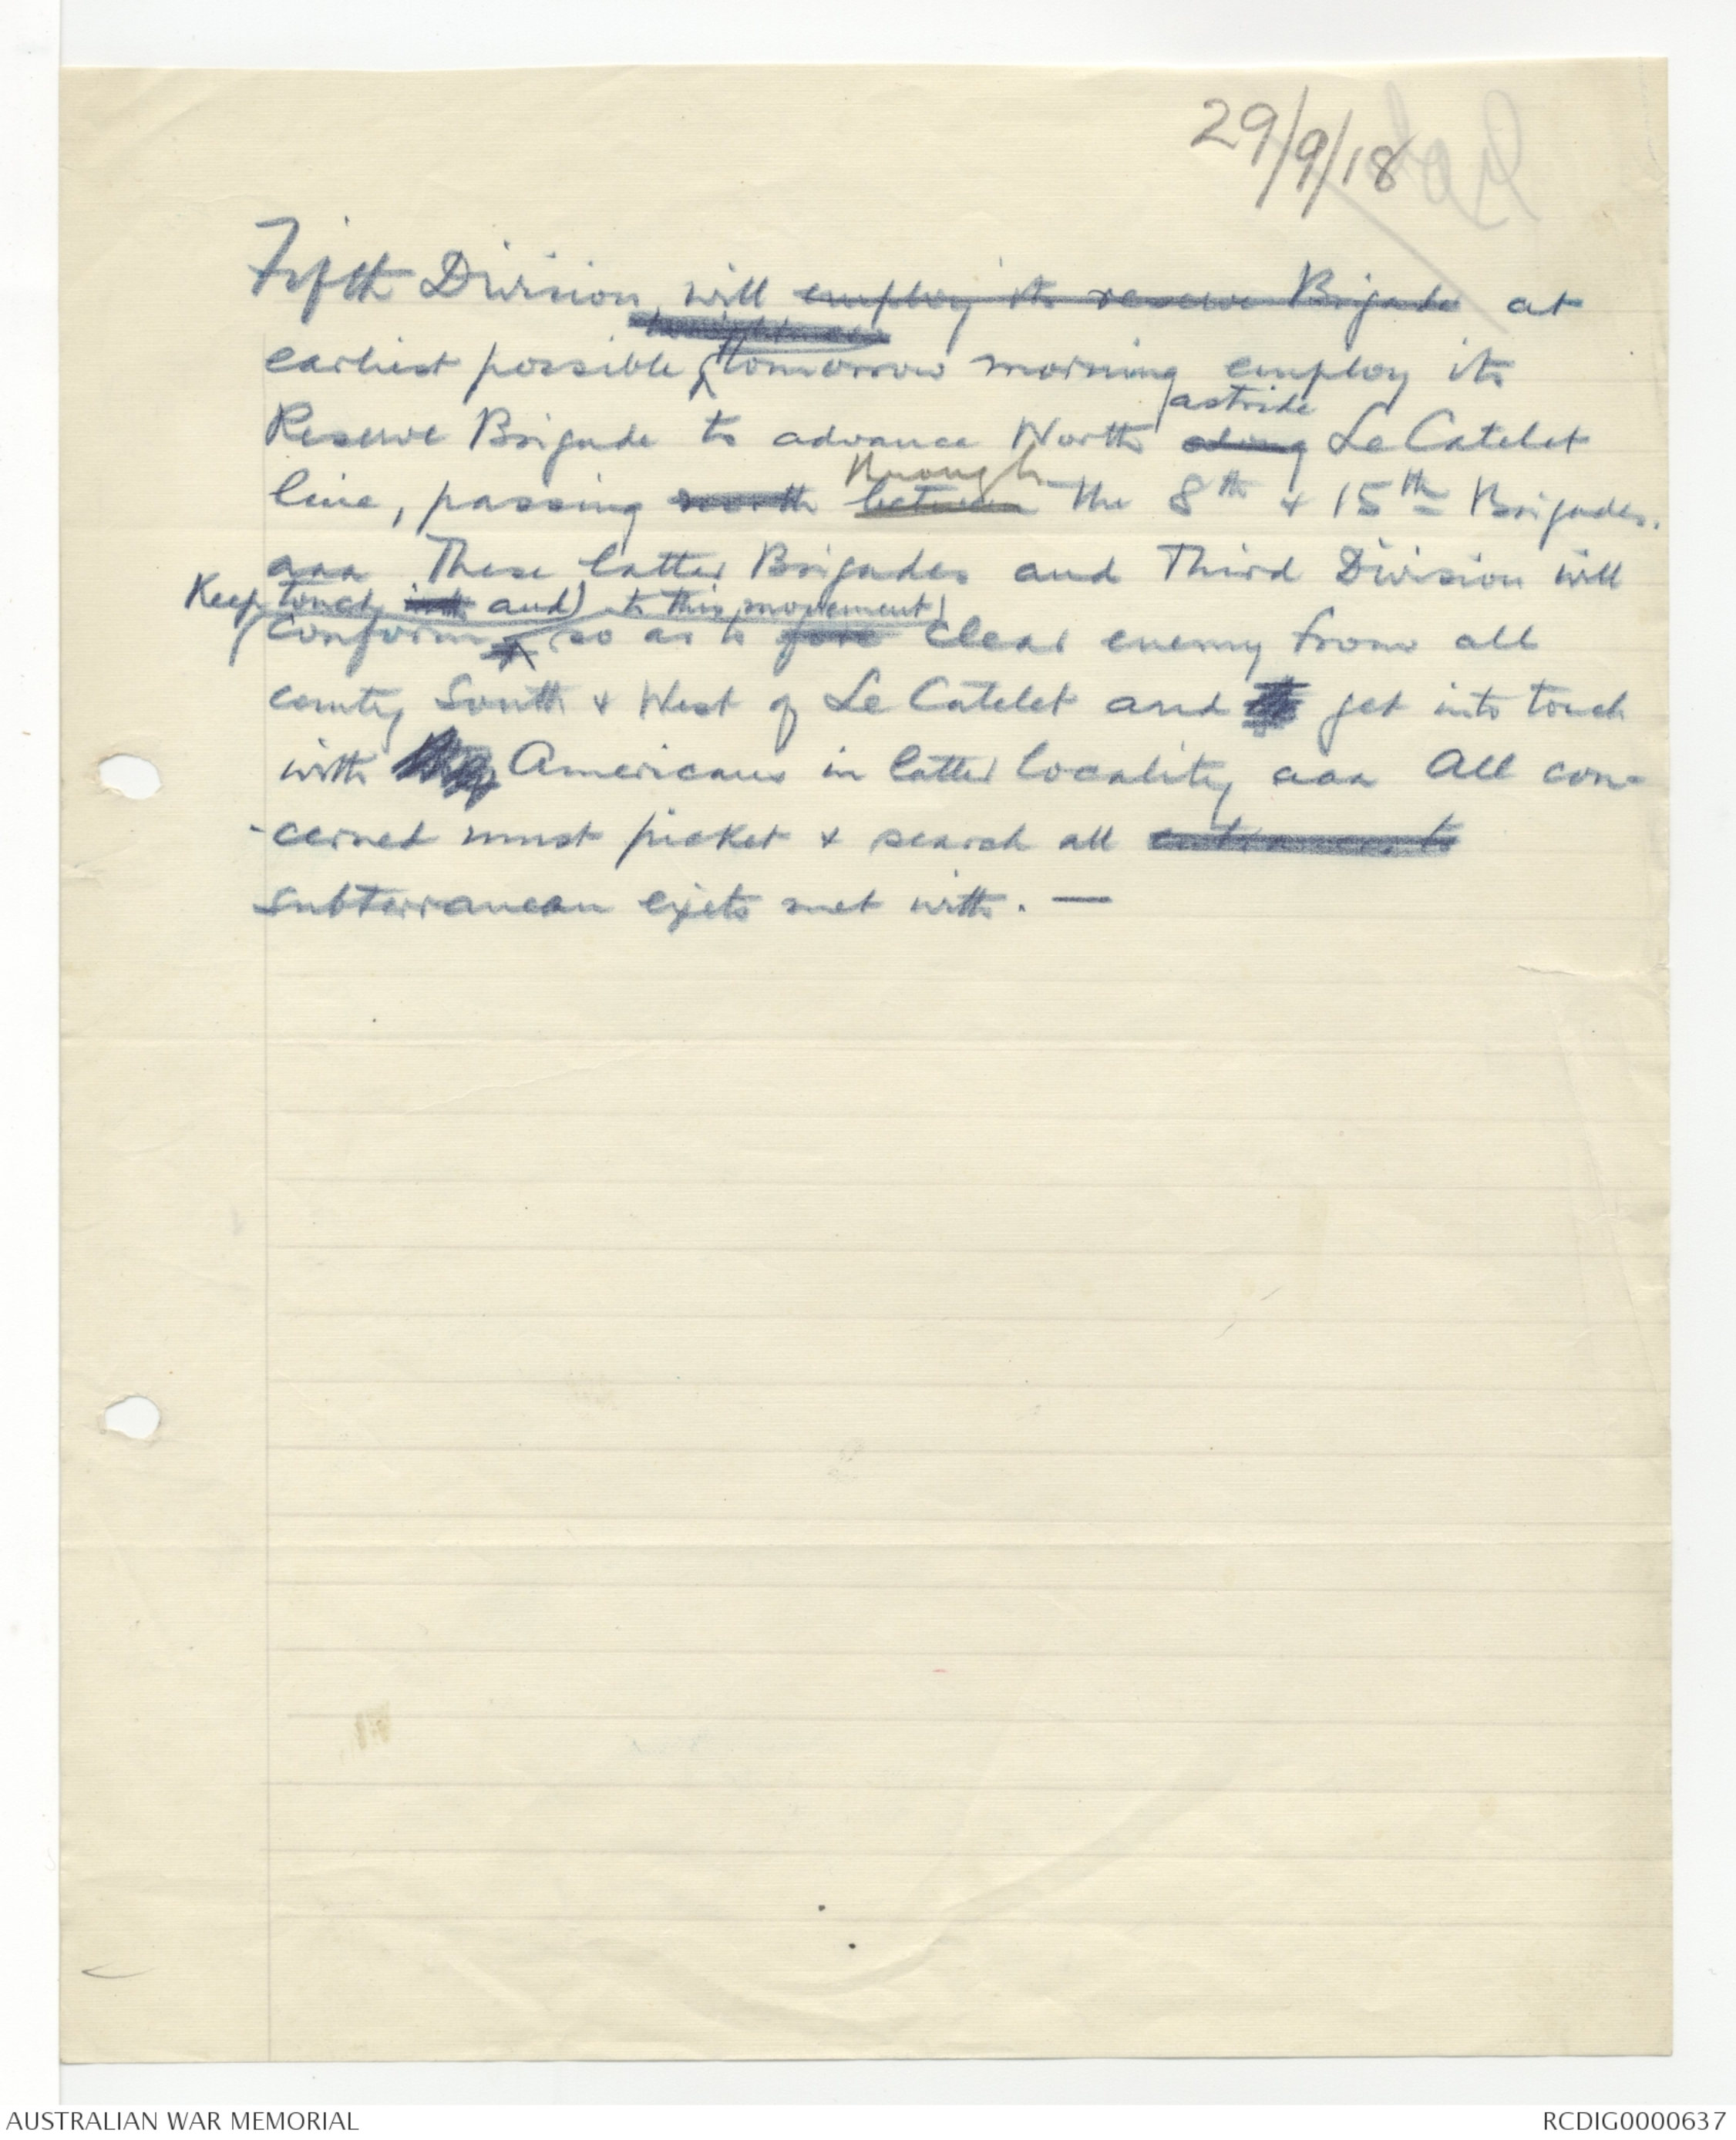 29/9/18
Fifth Division will employ its reserve Brigade at
earliest possible tomorrow morning employ its
astride
Reserve Brigade to advance North along Le Catelet
through
line, passing north between the 8th & 15th Brigades.
aaa These latter Brigades and Third Division will
Keep touch with and) to this movement)
(conform so as to clear enemy from all
country South & West of Le Catelet and get into touch
with Americans in latter locality aaa All con-
-cerned must picket & search all
subterranean exits met with. —
AUSTRALIAN WAR MEMORIAL
RCDIG0000637